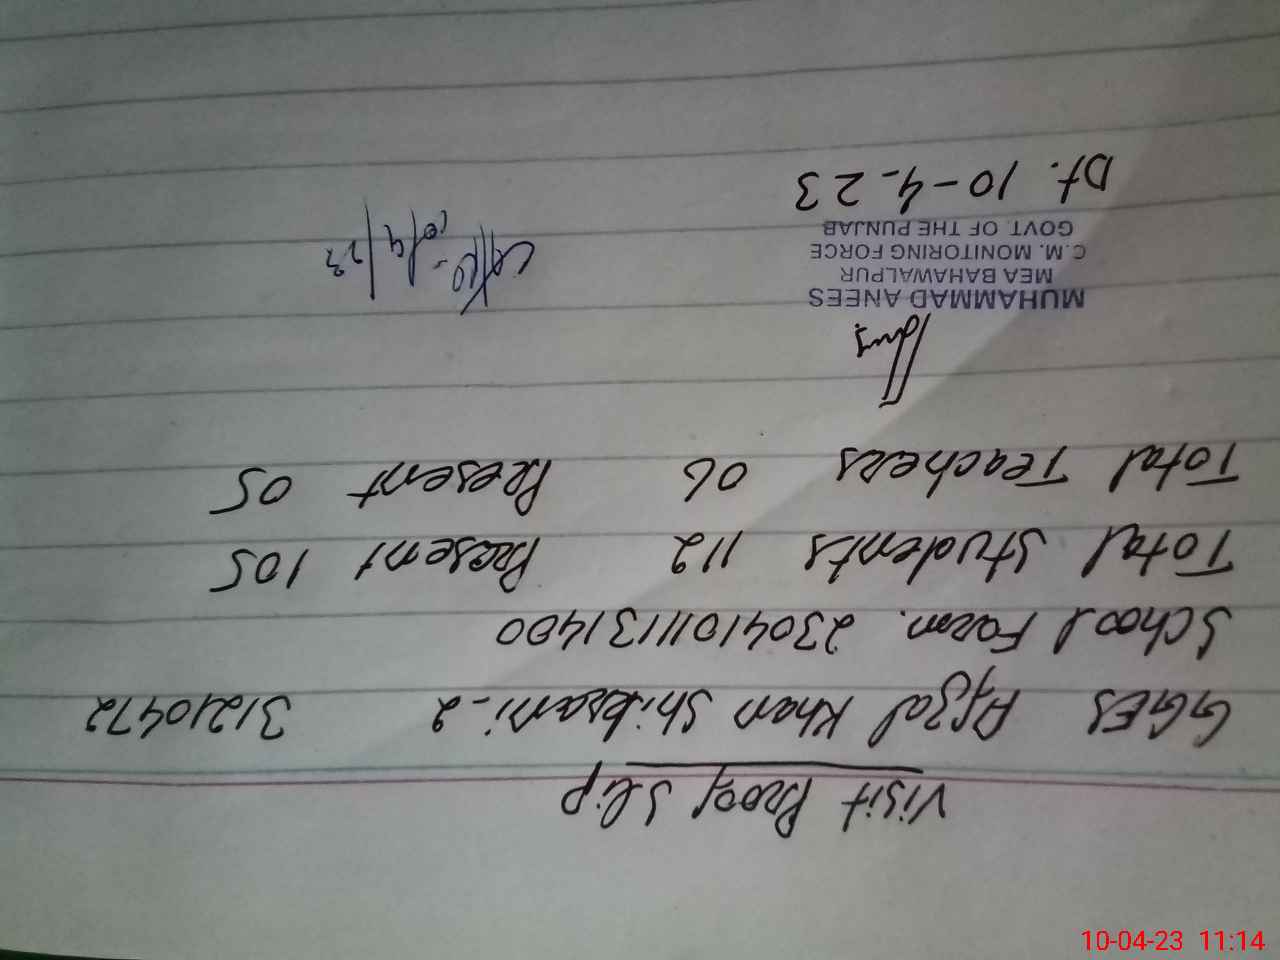 Visit Proof Slip
GGES Afzal Khan Shikrani-2 31210472
School Form. 2304101131400
Total Students 112 Present 105
Total Teachers 06 Present 05
MUHAMMAD ANEES
MEA BAHAWALPUR
C.M. MONITORING FORCE
GOVT OF THE PUNJAB
Dt. 10-4-23
10/4/23
10-04-23 11:14